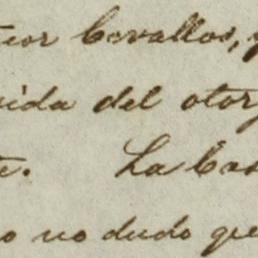 ñor Cevallos, y
vida del otor
te. La Cas
o no dudo que